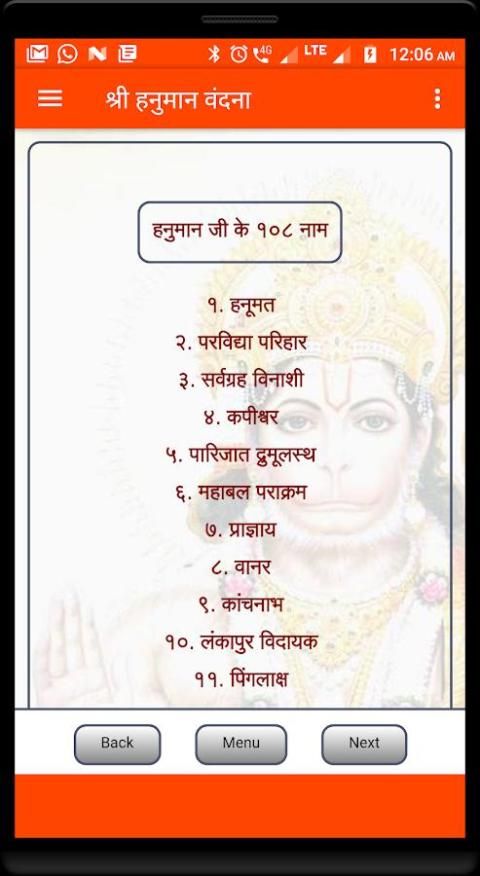 4G LTE 12:06 AM
श्री हनुमान वंदना
हनुमान जी के १०८ नाम
१. हनूमत
२. परविद्या परिहार
३. सर्वग्रह विनाशी
४. कपीश्वर
५. पारिजात द्रुमूलस्थ
६. महाबल पराक्रम
७. प्राज्ञाय
८. वानर
९. कांचनाभ
१०. लंकापुर विदायक
११. पिंगलाक्ष
Back Menu Next